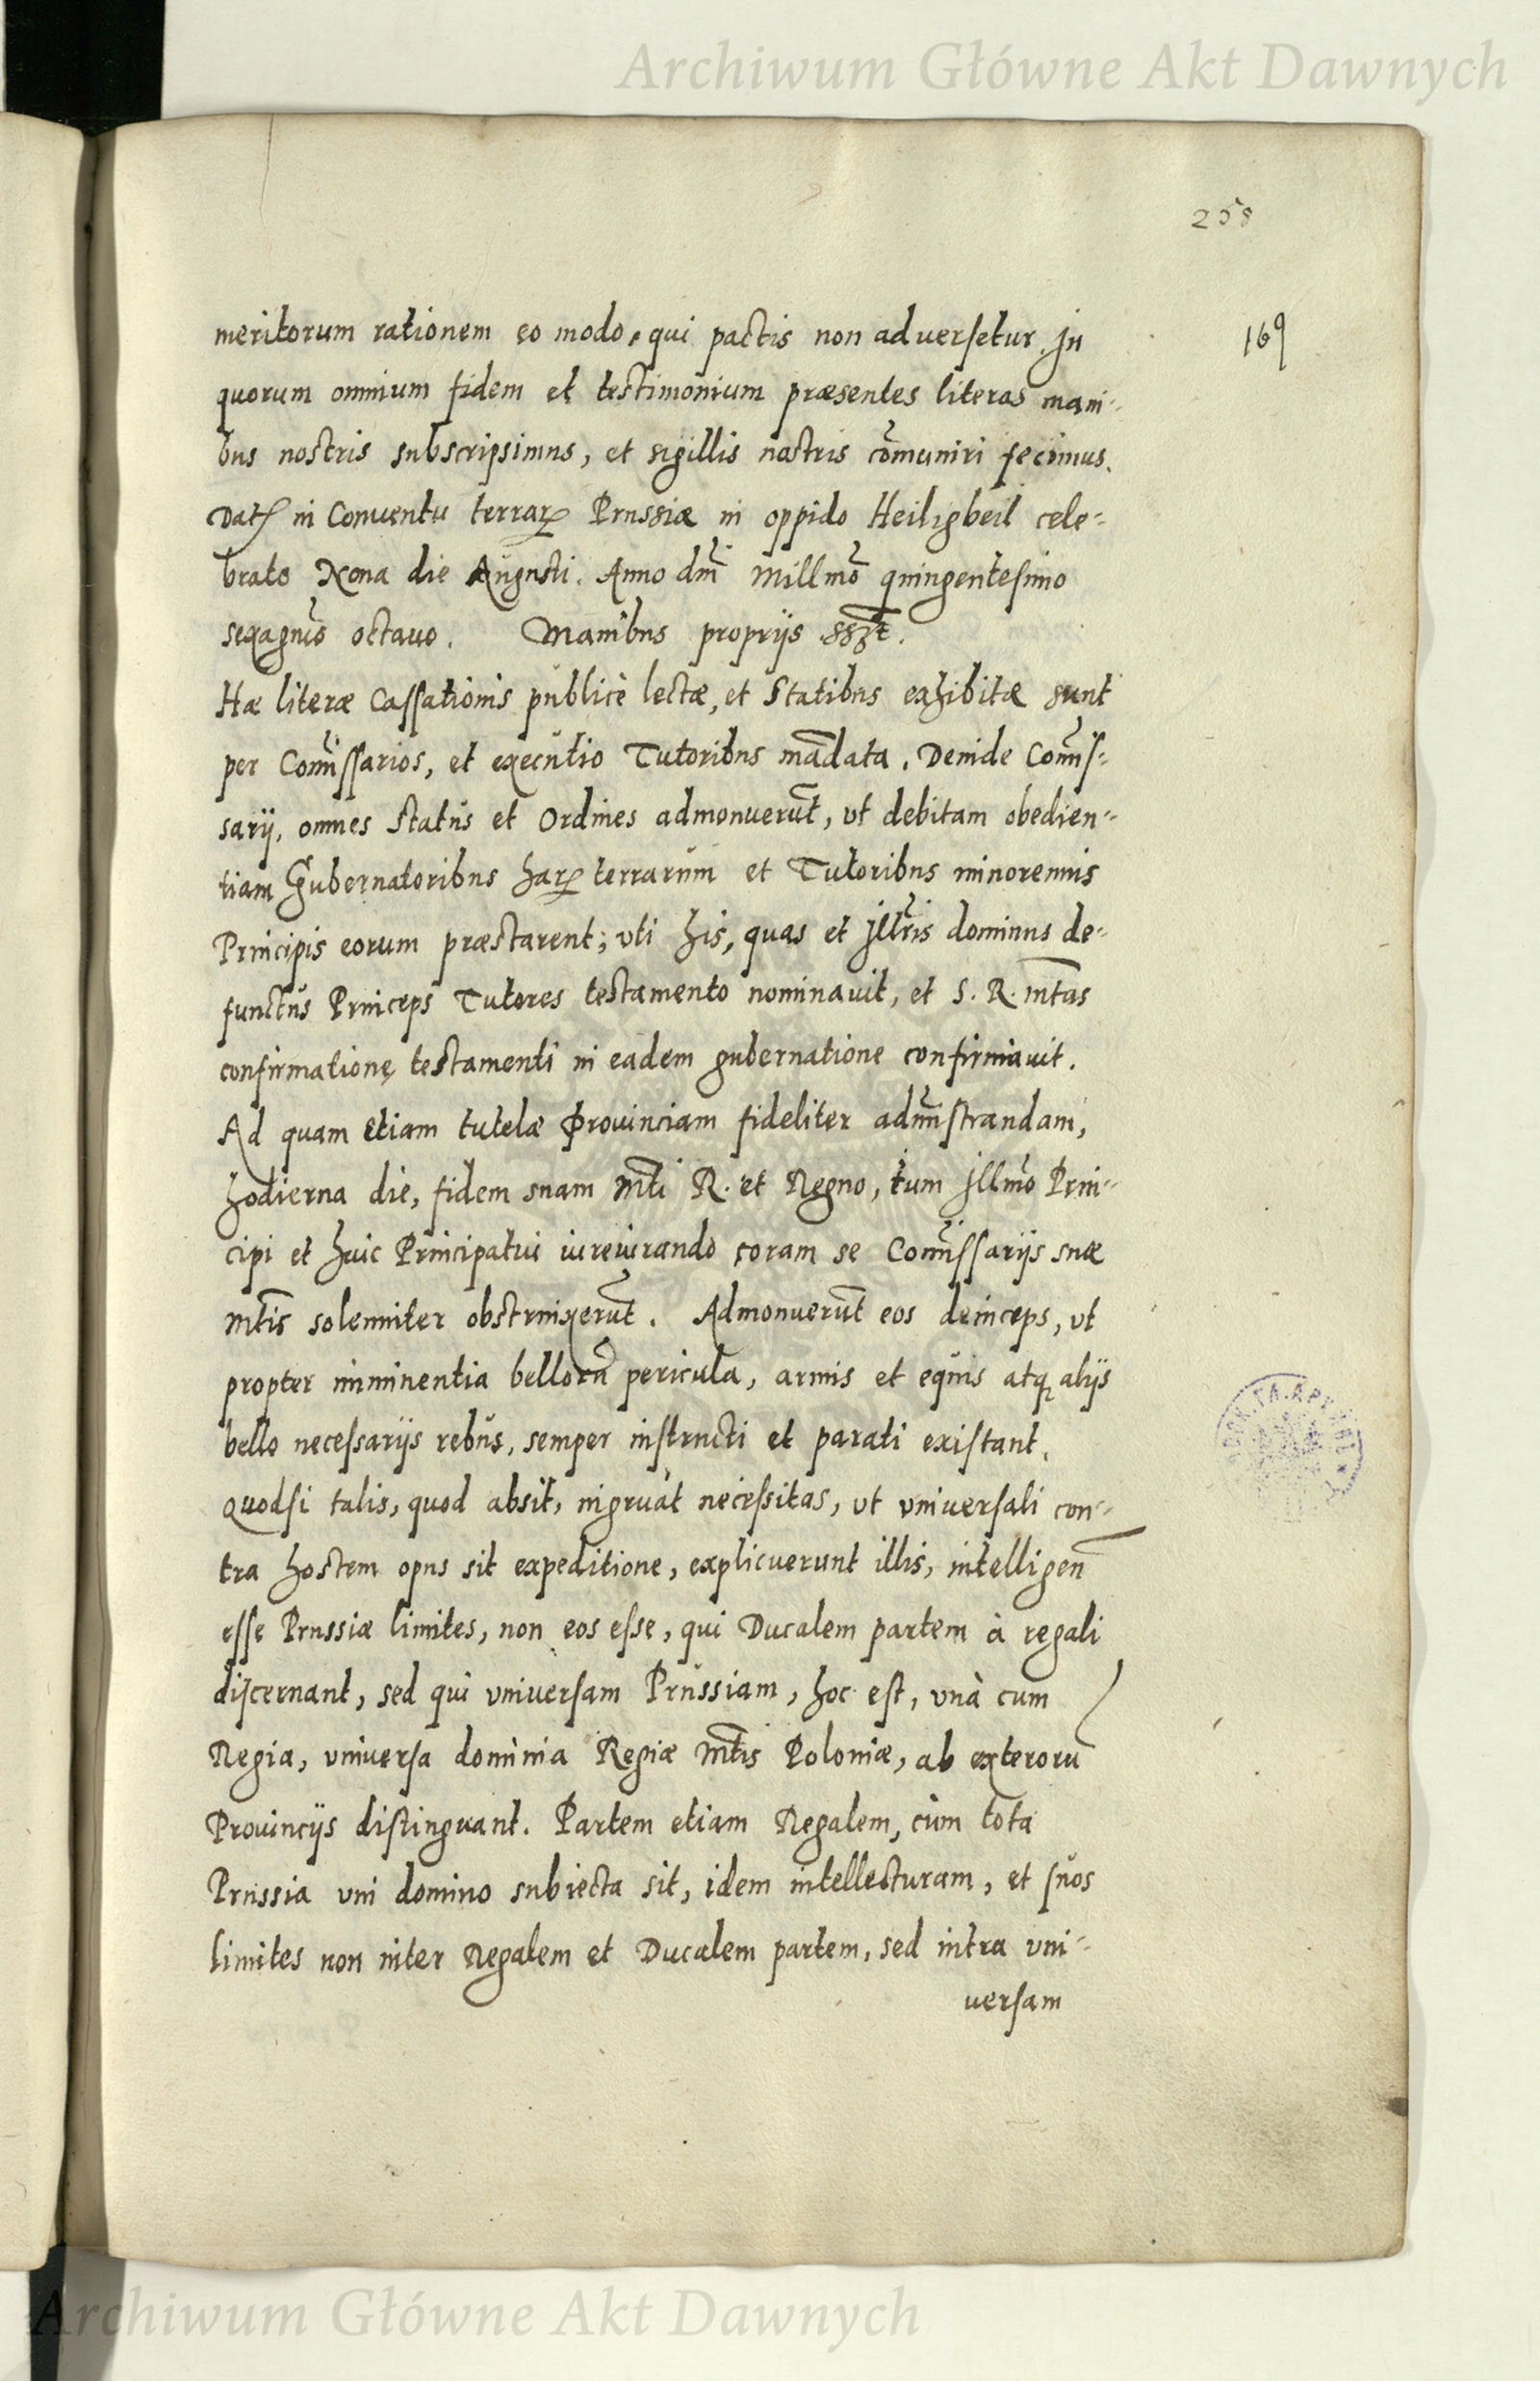 Archiwum Główne Akt Dawnych
258
169
meritorum rationem eo modo, qui pactis non aduersetur. In
quorum omnium fidem et testimonium præsentes literas mani-
bus nostris subscripsimus, et sigillis nostris cõmuniri fecimus.
Dat in Conuentu terrarꝝ Prussiæ in oppido Heiligbeil cele-
brato Nona die Augusti. Anno dm̃ Millmõ quingentesimo
sexagmõ octauo. Manibus proprijs
Hæ literæ Cassationis publicè lectæ, et Statibus exhibitæ sunt
per Com̃issarios, et executio Tutoribus mãdata. Deinde Com̃is-
sarij, omnes Status et Ordines admonuerũt, vt debitam obedien-
tiam Gubernatoribus harꝝ terrarum et Tutoribus minorennis
Principis eorum præstarent; vti his, quas et Jll̃ris dominus de-
functus Princeps Tutores testamento nominauit, et S. R. Mtas
confirmatione testamenti in eadem gubernatione confirmauit.
Ad quam etiam tutelæ Prouinciam fideliter adm̃istrandam,
hodierna die, fidem suam Mti R. et Regno, tum Jllmõ Prin-
cipi et huic Principatui iureiurando coram se Com̃issarijs suæ
Mtis solenniter obstrinxerũt. Admonuerũt eos deinceps, vt
propter imminentia bellorũ pericula, armis et equis atqꝫ alijs
bello necessarijs rebus, semper instructi et parati existant.
Quodsi talis, quod absit, ingruat necessitas, vt vniuersali con-
tra hostem opus sit expeditione, explicuerunt illis, intelligen̄
esse Prussiæ limites, non eos esse, qui Ducalem partem à regali
discernant, sed qui vniuersam Prussiam, hoc est, vnà cum
Regia, vniuersa dominia Regiæ Mtis Poloniæ, ab exterorũ
Prouincijs distinguant. Partem etiam Regalem, cùm tota
Prussia vni domino subiecta sit, idem intellecturam, et suos
limites non inter Regalem et Ducalem partem, sed intra vni-
uersam
Archiwum Główne Akt Dawnych